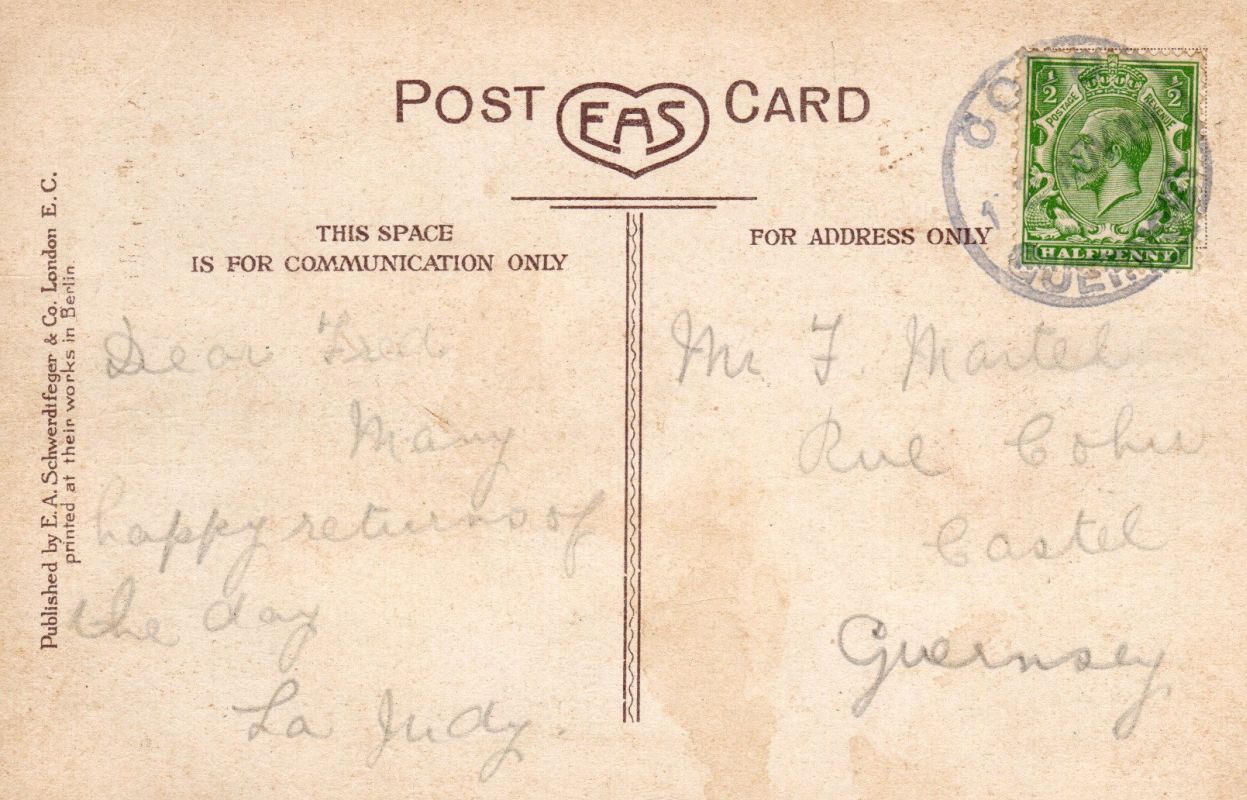 POST EAS CARD
THIS SPACE
IS FOR COMMUNICATION ONLY
FOR ADDRESS ONLY
½ POSTAGE REVENUE ½
HALFPENNY
Published by E. A. Schwerdtfeger & Co. London E. C.
printed at their works in Berlin.
Dear Fred
Many
happy returns of
the day
La Judy.
Mr F. Martel
Rue Cohu
Castel
Guernsey